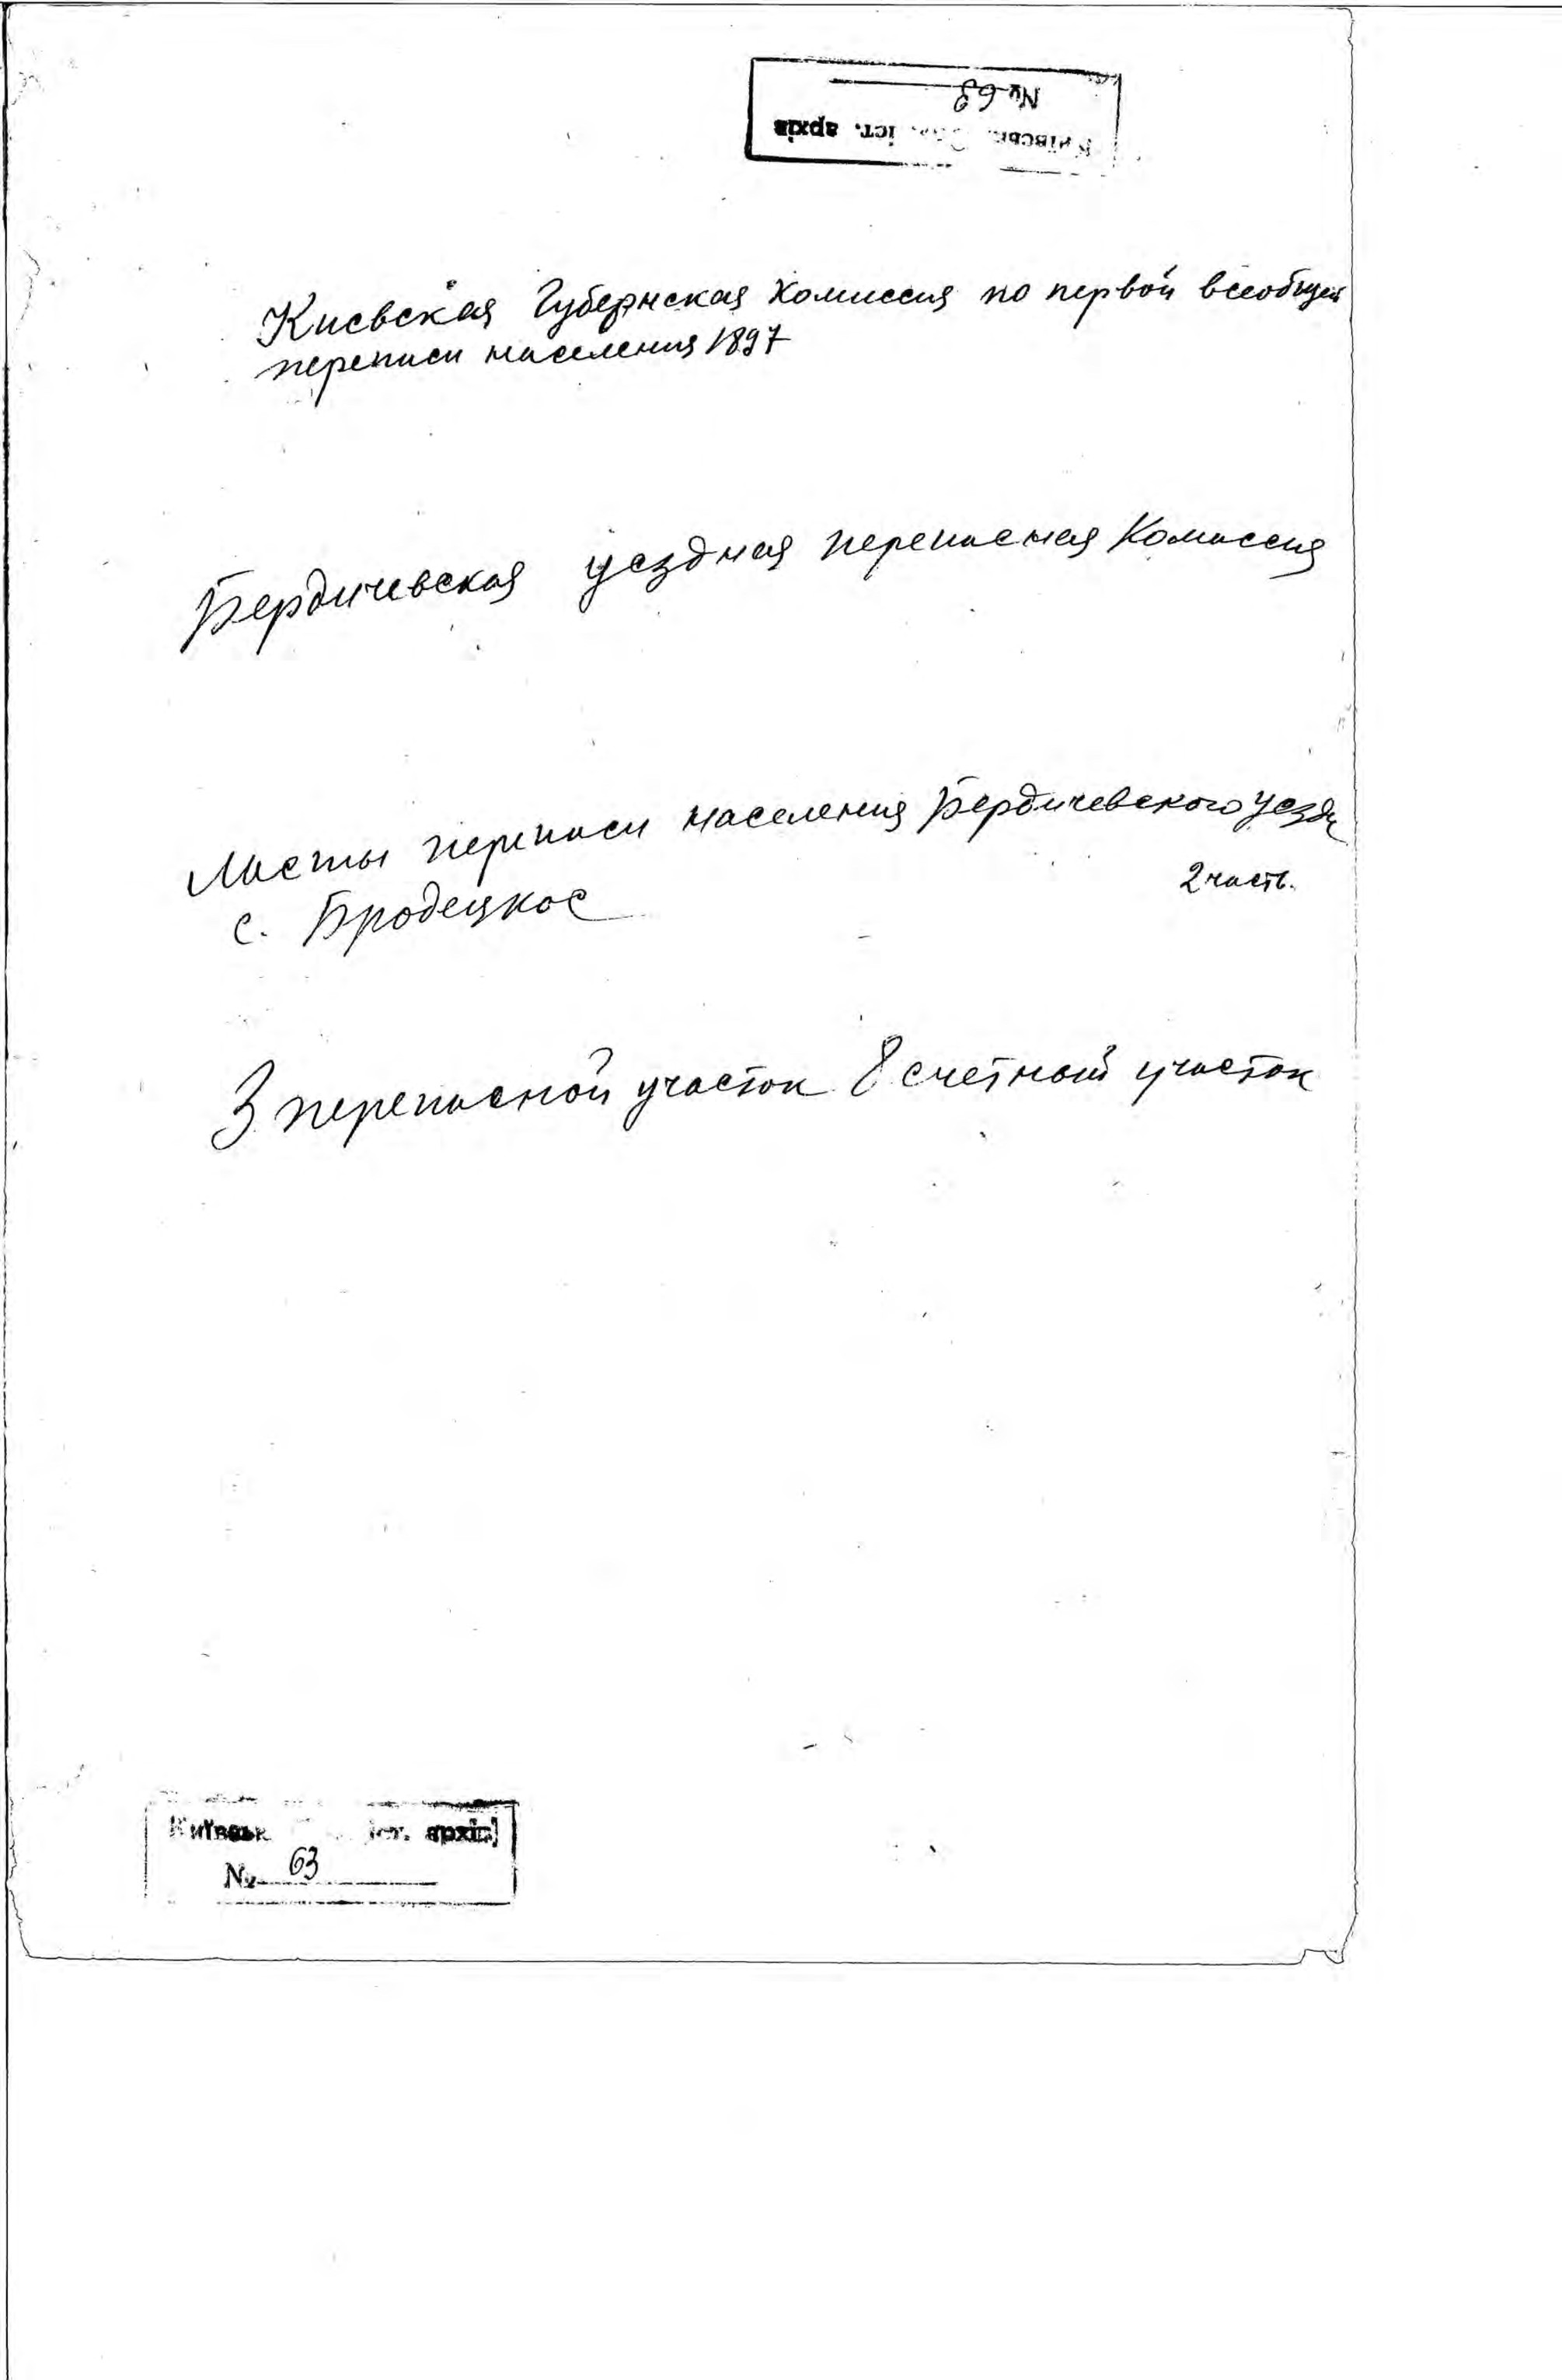 № 63
іст. архів
Киевская Губернская Комиссия по первой всеобщей
переписи населения 1897
Бердичевская уездная переписная Комиссия
Листы переписи населения Бердичевского уезда
2 часть.
с. Бродецкое
3 переписной участок 8 счетный участок
іст. архів
№ 63